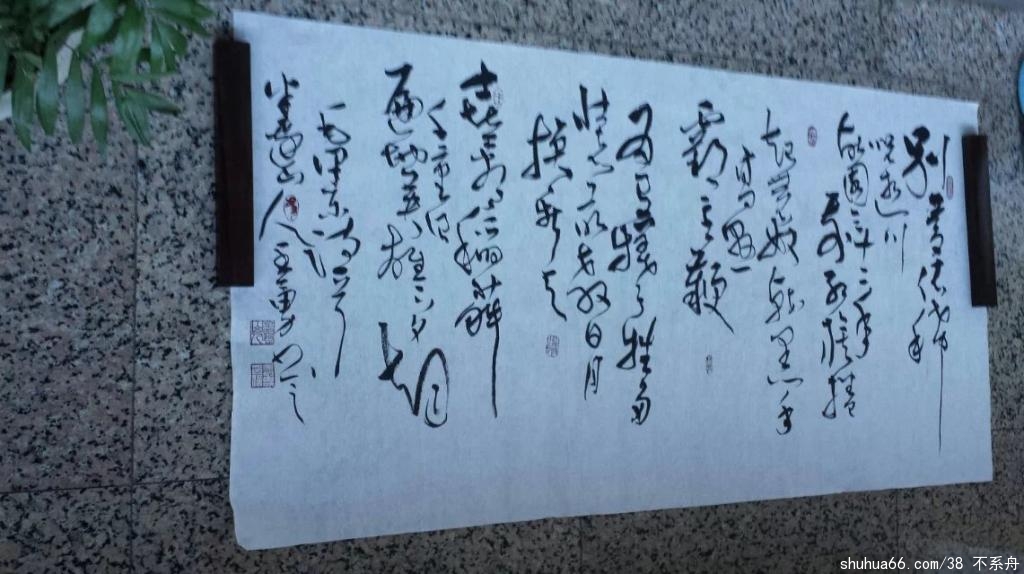 别梦依稀
咒逝川
故园三十二年
前红旗卷
起农奴戟黑手
高悬
霸主鞭
为有牺牲多
壮志敢教日月
换新天
喜看稻菽
千重浪
遍地英雄下夕
烟
毛泽东诗
山人
shuhua66.com/38 不系舟